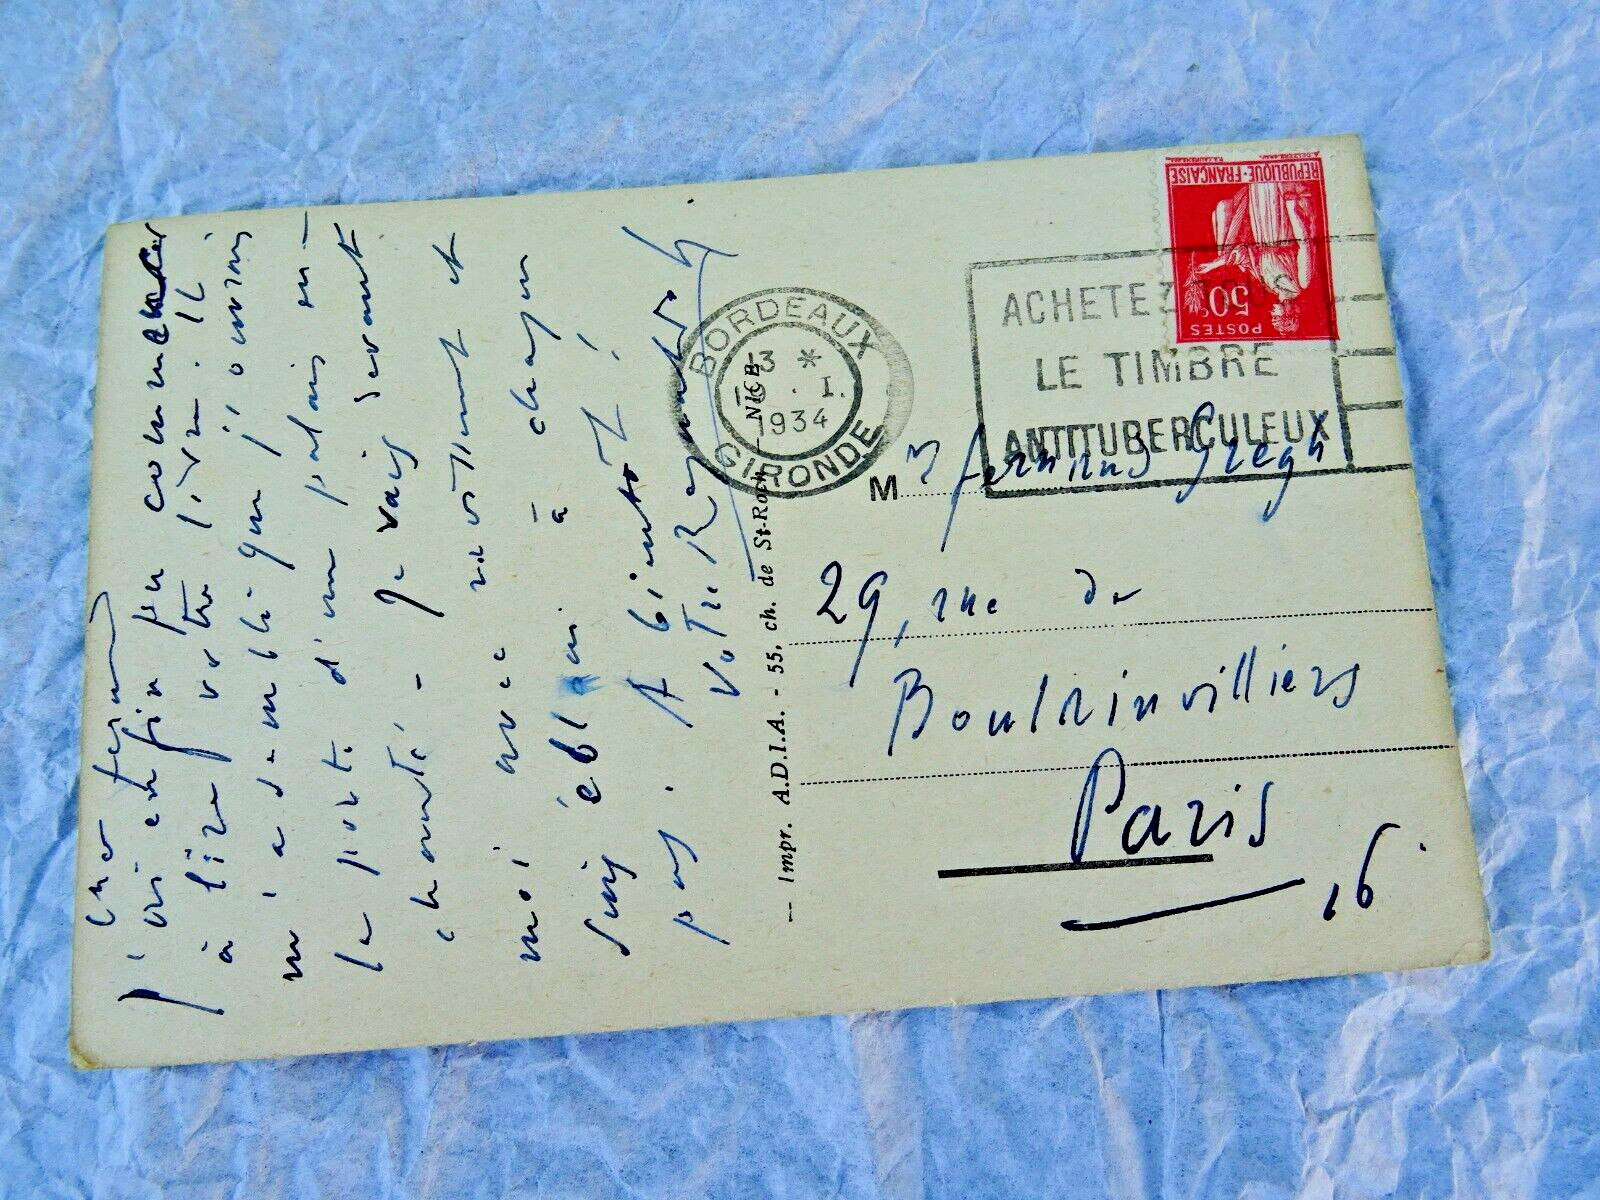 cher
j'ai enfin pu commencer
à lire votre livre. Il
m'a semblé que j'ouvrais
la porte d'un palais en-
chanté - Je vais devant
moi avec ravissement et
suis ébloui à chaque
pas. A bientôt !
Votre
— Impr. A.D.I.A. - 55, ch. de St-Roch — NICE
BORDEAUX
13 *
I.
1934
GIRONDE
ACHETEZ TOUS
LE TIMBRE
ANTITUBERCULEUX
REPUBLIQUE·FRANÇAISE
50c
POSTES
M Fernand Gregh
29, rue de
Boulainvilliers
Paris
16